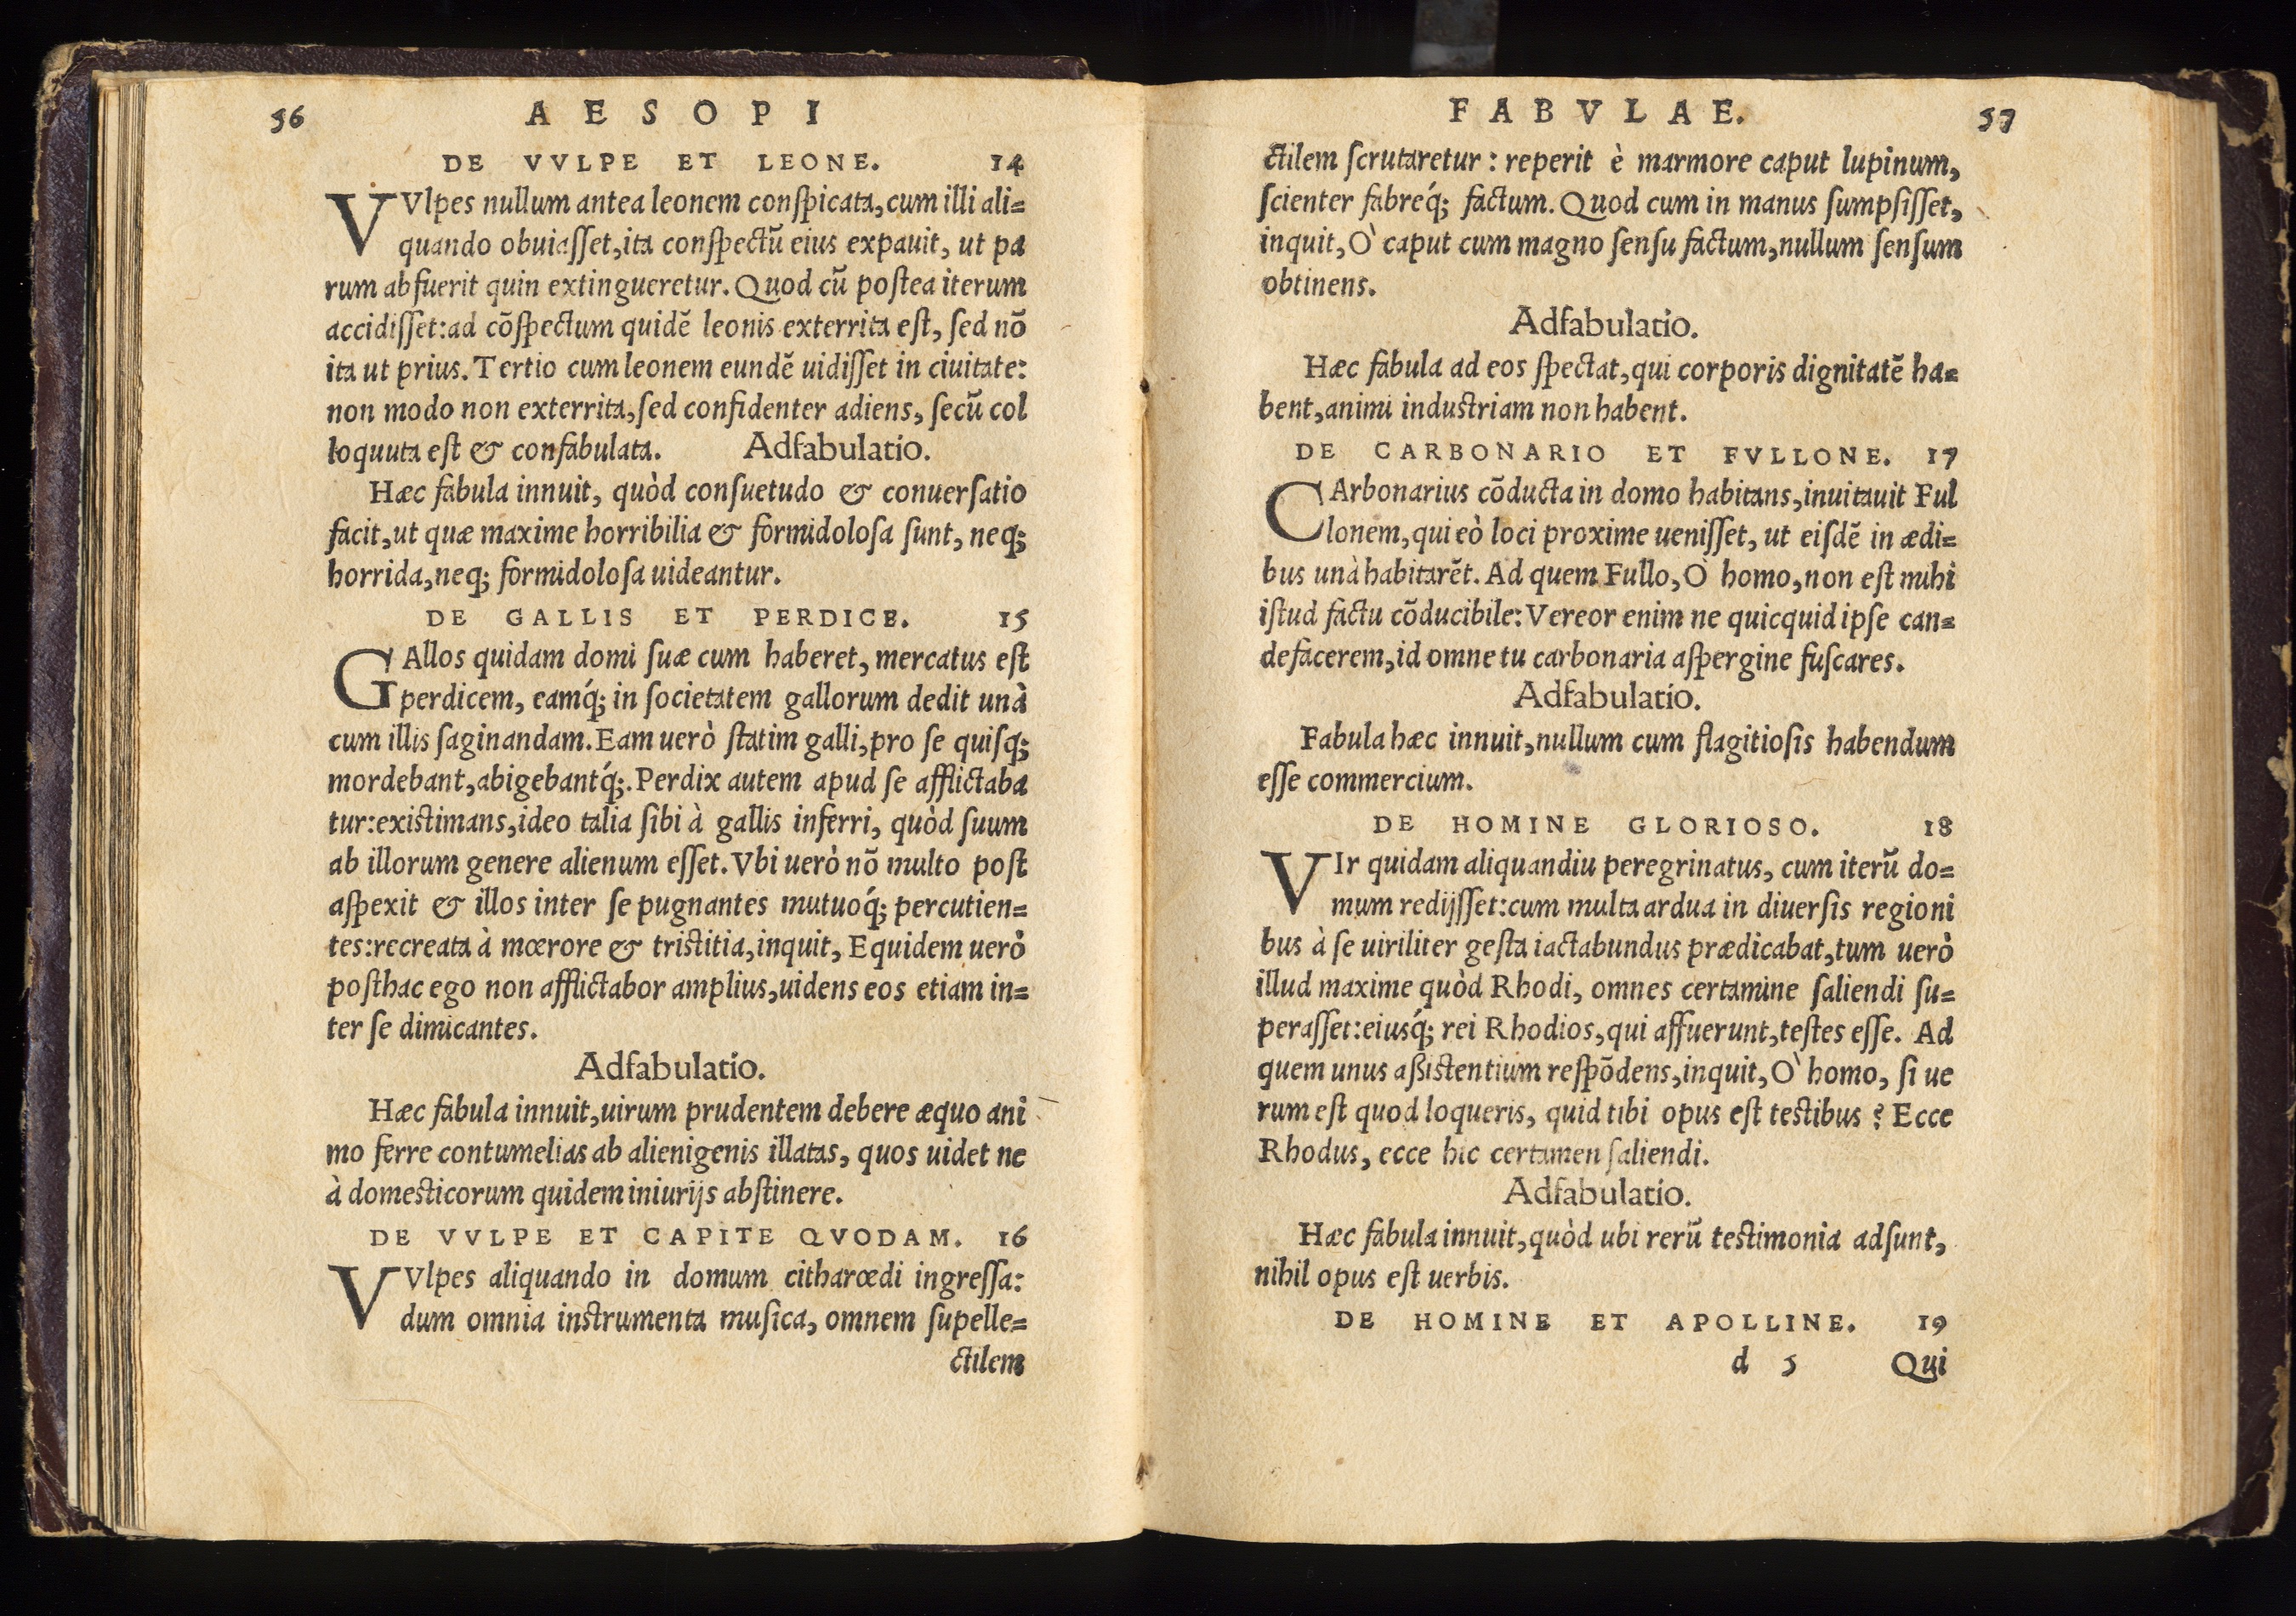 56
AESOPI
DE VVLPE ET LEONE. 14
VVlpes nullum antea leonem conſpicata, cum illi ali-
quando obuiaſſet, ita conſpectũ eius expauit, ut pa
rum abfuerit quin extingueretur. Quod cũ poſtea iterum
accidiſſet: ad cõſpectum quidẽ leonis exterrita eſt, ſed nõ
ita ut prius. Tertio cum leonem eundẽ uidiſſet in ciuitate:
non modo non exterrita, ſed confidenter adiens, ſecũ col
loquuta eſt & confabulata. Adfabulatio.
Hæc fabula innuit, quòd conſuetudo & conuerſatio
facit, ut quæ maxime horribilia & formidoloſa ſunt, neq;
horrida, neq; formidoloſa uideantur.
DE GALLIS ET PERDICE. 15
GAllos quidam domi ſuæ cum haberet, mercatus eſt
perdicem, eamq́; in ſocietatem gallorum dedit unà
cum illis ſaginandam. Eam uerò ſtatim galli, pro ſe quiſq;
mordebant, abigebantq́;. Perdix autem apud ſe afflictaba
tur: existimans, ideo talia ſibi à gallis inferri, quòd ſuum
ab illorum genere alienum eſſet. Vbi uerò nõ multo poſt
aſpexit & illos inter ſe pugnantes mutuoq́; percutien-
tes: recreata à mœrore & tristitia, inquit, Equidem uerò
poſthac ego non afflictabor amplius, uidens eos etiam in-
ter ſe dimicantes.
Adfabulatio.
Hæc fabula innuit, uirum prudentem debere æquo ani
mo ferre contumelias ab alienigenis illatas, quos uidet ne
à domesticorum quidem iniurijs abſtinere.
DE VVLPE ET CAPITE QVODAM. 16
VVlpes aliquando in domum citharœdi ingreſſa:
dum omnia instrumenta muſica, omnem ſupelle-
ctilem
FABVLAE.
57
ctilem ſcrutaretur: reperit è marmore caput lupinum,
ſcienter fabreq́; factum. Quod cum in manus ſumpſiſſet,
inquit, Ò caput cum magno ſenſu factum, nullum ſenſum
obtinens.
Adfabulatio.
Hæc fabula ad eos ſpectat, qui corporis dignitatẽ ha-
bent, animi induſtriam non habent.
DE CARBONARIO ET FVLLONE. 17
CArbonarius cõducta in domo habitans, inuitauit Ful
lonem, qui eò loci proxime ueniſſet, ut eiſdẽ in ædi-
bus unà habitarẽt. Ad quem Fullo, Ò homo, non eſt mihi
iſtud factu cõducibile: Vereor enim ne quicquid ipſe can-
defacerem, id omne tu carbonaria aſpergine fuſcares.
Adfabulatio.
Fabula hæc innuit, nullum cum flagitioſis habendum
eſſe commercium.
DE HOMINE GLORIOSO. 18
VIr quidam aliquandiu peregrinatus, cum iterũ do-
mum redijſſet: cum multa ardua in diuerſis regioni
bus à ſe uiriliter geſta iactabundus prædicabat, tum uerò
illud maxime quòd Rhodi, omnes certamine ſaliendi ſu-
peraſſet: eiusq́; rei Rhodios, qui affuerunt, teſtes eſſe. Ad
quem unus aßistentium reſpõdens, inquit, Ò homo, ſi ue
rum eſt quod loqueris, quid tibi opus eſt testibus? Ecce
Rhodus, ecce hic certamen ſaliendi.
Adfabulatio.
Hæc fabula innuit, quòd ubi rerũ testimonia adſunt,
nihil opus eſt uerbis.
DE HOMINE ET APOLLINE. 19
d 5 Qui